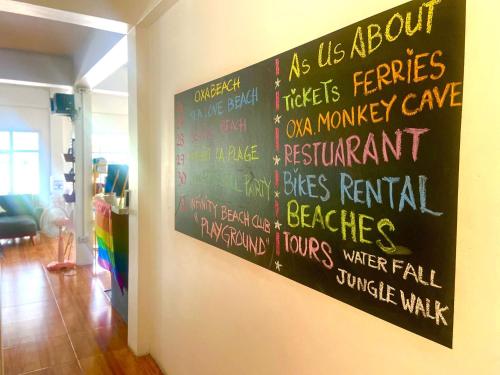 OXA BEACH
BEACH
BEACH
LA PLAGE
PARTY
INFINITY BEACH CLUB
"PLAYGROUND"
AS US ABOUT
TICKETS FERRIES
OXA. MONKEY CAVE
RESTUARANT
BIKES RENTAL
BEACHES
TOURS WATER FALL
JUNGLE WALK